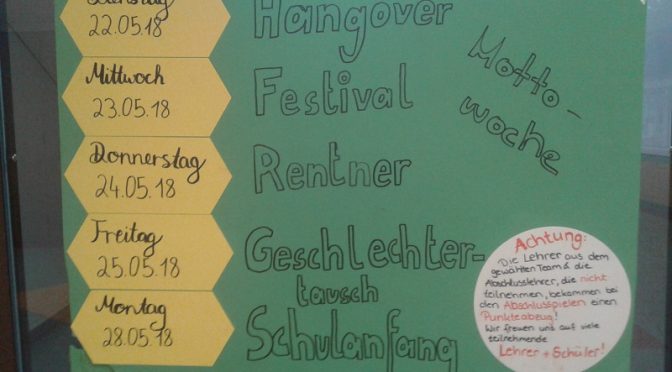 Dienstag
22.05.18
Hangover
Motto-
woche
Mittwoch
23.05.18
Festival
Donnerstag
24.05.18
Rentner
Freitag
25.05.18
Geschlechter-
tausch
Montag
28.05.18
Schulanfang
Achtung:
Die Lehrer aus dem
gewählten Team & die
Abschlusslehrer, die nicht
teilnehmen, bekommen bei
den Abschlussspielen einen
Punkteabzug!
Wir freuen uns auf viele
teilnehmende
Lehrer + Schüler!